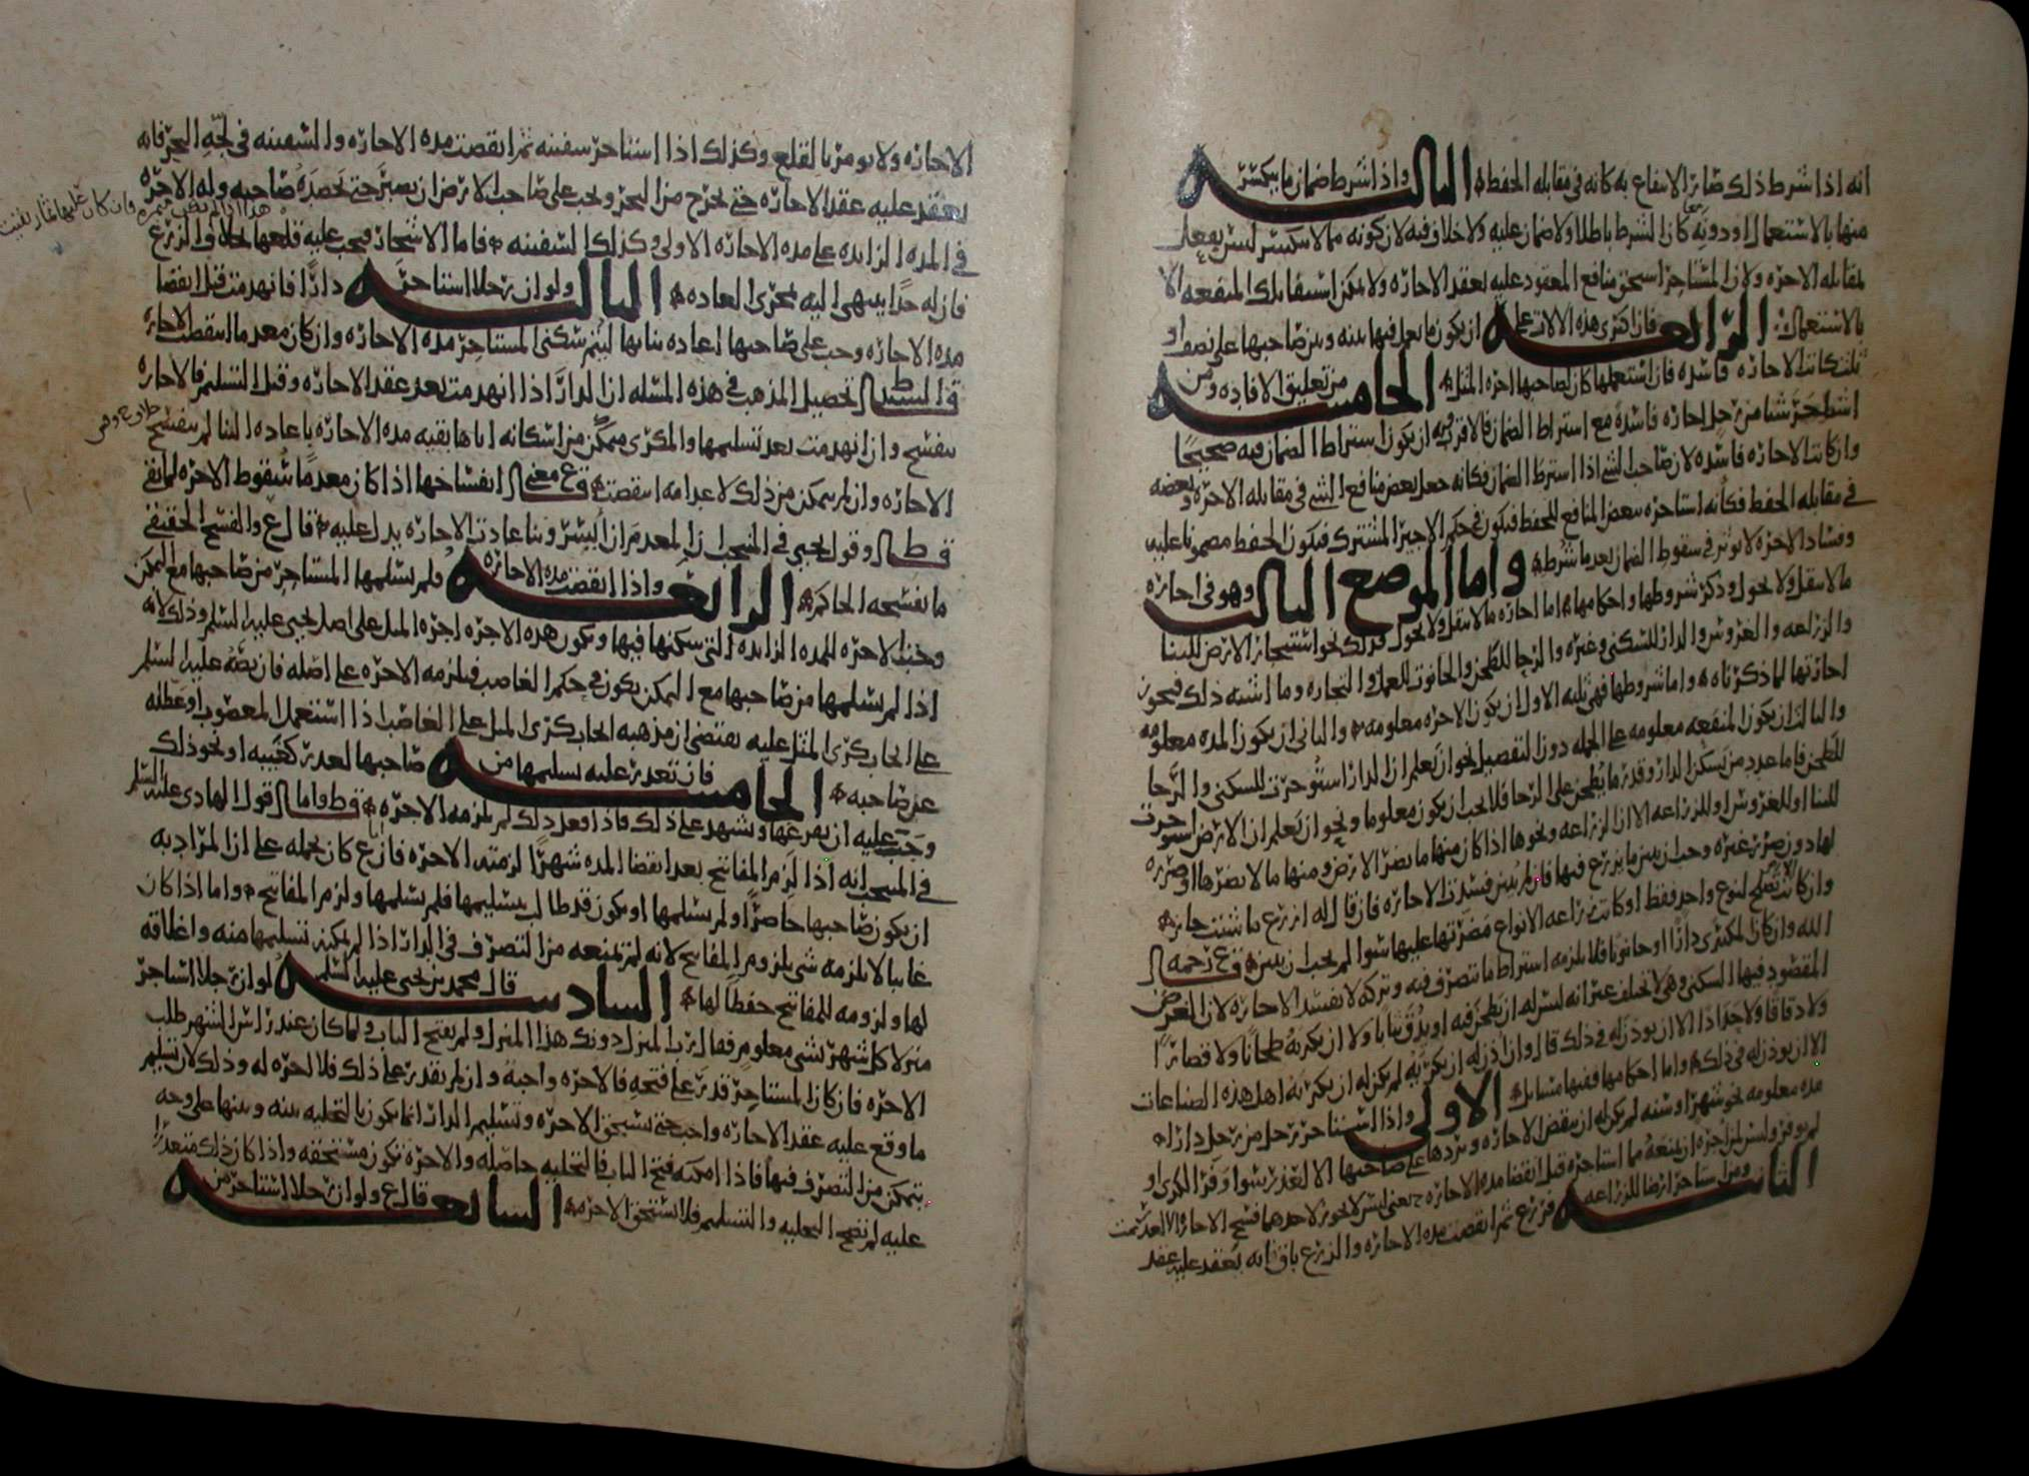 انه اذا شرط ذلك صار الانتفاع به كانه في مقابله الحفظ الثالثة واذا شرط ضمان ما ينكسر
منها بالاستعمال او دونه كان الشرط باطلا ولا ضمان عليه ولا خلاف فيه لان كونه مما لا ينكسر ليس يفعل
لمقابله الاجره ولان المستاجر استحق منافع المعقود عليه بعقد الاجاره ولا يمكن استيفا تلك المنفعه الا
بالاستعمال الرابعة فان اكترى هذه الالات على ان يكون ما يعمل فيها بينه وبين صاحبها على نصف او
ثلث كانت الاجاره فاسده فان استعملها كان لصاحبها اجره المثل الخامسة من تعليق الافاده ومن
استاجر شيا من رجل اجاره فاسده مع اشتراط الضمان فالاقرب ان يكون اشتراط الضمان فيه صحيحا
وان كانت الاجاره فاسده لان صاحب الشي اذا اشترط الضمان فكانه جعل بعض منافع الشي في مقابله الاجره وبعضه
في مقابله الحفظ فكانه استاجره ببعض المنافع للحفظ فيكون في حكم الاجير المشترك فيكون الحفظ مضمونا عليه
وفساد الاجره لا يوثر في سقوط الضمان بعد ما شرط واما الموضع الثالث وهو في اجاره
ما لا ينقل ولا يحول وذكر شروطها واحكامها اما اجاره ما لا ينقل ولا يحول فذلك نحو استيجار الارض للبنا
والزراعه والغروس والدار للسكنى وغيره والرحا للطحن والحانوت للعمل والتجاره وما اشبه ذلك فيجوز
اجارتها لما ذكرناه واما شروطها فهي ثلثه الاول ان يكون الاجره معلومه والثاني ان يكون المده معلومه
والثالث ان يكون المنفعه معلومه على الجمله دون التفصيل نحو ان يعلم ان الدار استوجرت للسكنى والرحا
للطحن فاما عدد من يسكن الدار وقدر ما يطحن على الرحا فلا يجب ان يكون معلوما ونحو ان يعلم ان الارض استوجرت
للبنا او للغروس او للزراعه الا ان الزراعه ونحوها اذا كان منها ما يضر الارض ومنها ما لا يضرها او ضرره
لها دون ضرر غيره وجب ان يبين ما يزرع فيها فان لم يبين فسدت الاجاره فان قال له ازرع ما شئت جاز
وان كانت الارض تصلح لنوع واحد فقط او كانت زراعه الانواع مضرتها عليها سوا لم يجب ان يبين قرع رحمه
الله وان كان المكترى دارا او حانوتا فلا يلزمه اشتراط ما يتصرف فيه وتركه لا يفسد الاجاره لان الغرض
المقصود فيها السكنى وهي لا تختلف غير انه ليس له ان يطحن فيه او يدق ثيابا ولا ان يكريه طحانا ولا قصارا
ولا دقاقا ولا حدادا الا ان يوذن له في ذلك قال وان اذن له ان يكريه لم يكن له ان يكريه اهل هذه الصناعات
الا ان يوذن له في ذلك واما احكامها ففيها مسايل الاولى واذا استاجر رجل من رجل دارا
مده معلومه نحو شهر او سنه لم يكن له ان ينقض الاجاره ويردها على صاحبها الا لعذر سوا وفر الكرى او
لم يوفر وليس لمن اجره ان يمنعه مما استاجره قبل انقضا مده الاجاره يعني ليس لا يجوز لاحدهما فسخ الاجاره الا لعذر
الثانية ومن استاجر ارضا للزراعه فزرع ثم انقضت مده الاجاره والزرع باق فانه يعقد عليه عقد
الاجاره ولا يومر بالقلع وكذلك اذا استاجر سفينه ثم انقضت مده الاجاره والسفينه في لجه البحر فانه
يعقد عليه عقد الاجاره حتى يخرج من البحر ويجب على صاحب الارض ان يصبر حتى يحصده صاحبه وله الاجره
في المده الزايده على مده الاجاره الاولى وكذلك السفينه فاما الاشجار فيجب عليه قلعها بخلاف الزرع
فان له حدا ينتهي اليه بمجرى العاده الثالثة ولو ان رجلا استاجر دارا فانهدمت قبل انقضا
مده الاجاره وجب على صاحبها اعاده بنايها ليتم سكنى المستاجر مده الاجاره وان كان معدما انتقضت الاجاره
قال ط تحصيل المذهب في هذه المسئله ان الدار اذا انهدمت بعد عقد الاجاره وقبل التسليم فالاجاره
تنفسخ وان انهدمت بعد تسليمها والمكرى متمكن من اسكانه اياها بقيه مده الاجاره باعاده البنا لم تنفسخ
الاجاره وان لم يتمكن من ذلك لاعدامه انتقضت قرع معنى انفساخها اذا كان معدما سقوط الاجره لما بقي
قال ط وقول يحيى في المنتخب ان المعدم ان ايسر وبنا عادت الاجاره يدل عليه قال ع والفسخ الحقيقي
ما يفسخه الحاكم الرابعة واذا انقضت مده الاجاره ولم يسلمها المستاجر من صاحبها مع التمكن
وجبت الاجره للمده الزايده التي سكنها فيها وتكون هذه الاجره اجره المثل على اصل يحيى عليه السلم وذلك لانه
اذا لم يسلمها من صاحبها مع التمكن يكون في حكم الغاصب فيلزمه الاجره على اصله فان نصه عليه السلم
على ايجاب كرى المثل عليه يقتضي ان مذهبه ايجاب كرى المثل على الغاصب اذا استعمل المغصوب او عطله
عن صاحبه الخامسة فان تعذر عليه تسليمها من صاحبها لعذر كغيبه او نحو ذلك
وجب عليه ان يفرغها ويشهد على ذلك فاذا فعل ذلك لم يلزمه الاجره ط واما قول الهادي عليه السلم
في المنتخب انه اذا لزم المفاتيح بعد انقضا المده شهرا لزمته الاجره فان ع كان يحمله على ان المراد به
ان يكون صاحبها حاضرا ولم يسلمها او يكون قد طالب بتسليمها فلم يسلمها ولزم المفاتيح واما اذا كان
غايبا لا يلزمه شي بلزوم المفاتيح لانه لم يمنعه من التصرف في الدار اذا لم يمكن تسليمها منه واغلاقه
لها ولزومه للمفاتيح حفظا لها السادسة قال محمد بن يحيى عليه السلم لو ان رجلا استاجر
منزلا كل شهر بشي معلوم فقال رب المنزل دونك هذا المنزل ولم يفتح الباب فلما كان عند راس الشهر طلب
الاجره فان كان المستاجر قدر على فتحه فالاجره واجبه وان لم يقدر على ذلك فلا اجره له وذلك لان تسليم
ما وقع عليه عقد الاجاره واجب حتى يستحق الاجره وتسليم الدار انما يكون بالتخليه بينه وبينها على وجه
يتمكن من التصرف فيها فاذا امكنه فتح الباب فالتخليه حاصله والاجره تكون مستحقه واذا كان ذلك متعذرا
عليه لم تصح التخليه والتسليم فلا يستحق الاجره السابعة قال ع ولو ان رجلا استاجر من